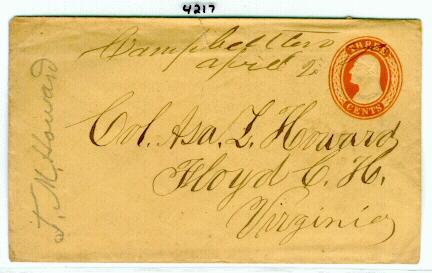 4217
Campbelltero
april 2
THREE
CENTS
Col. Asa. L. Howard
Floyd C. H.
Virginia
T. M. Howard